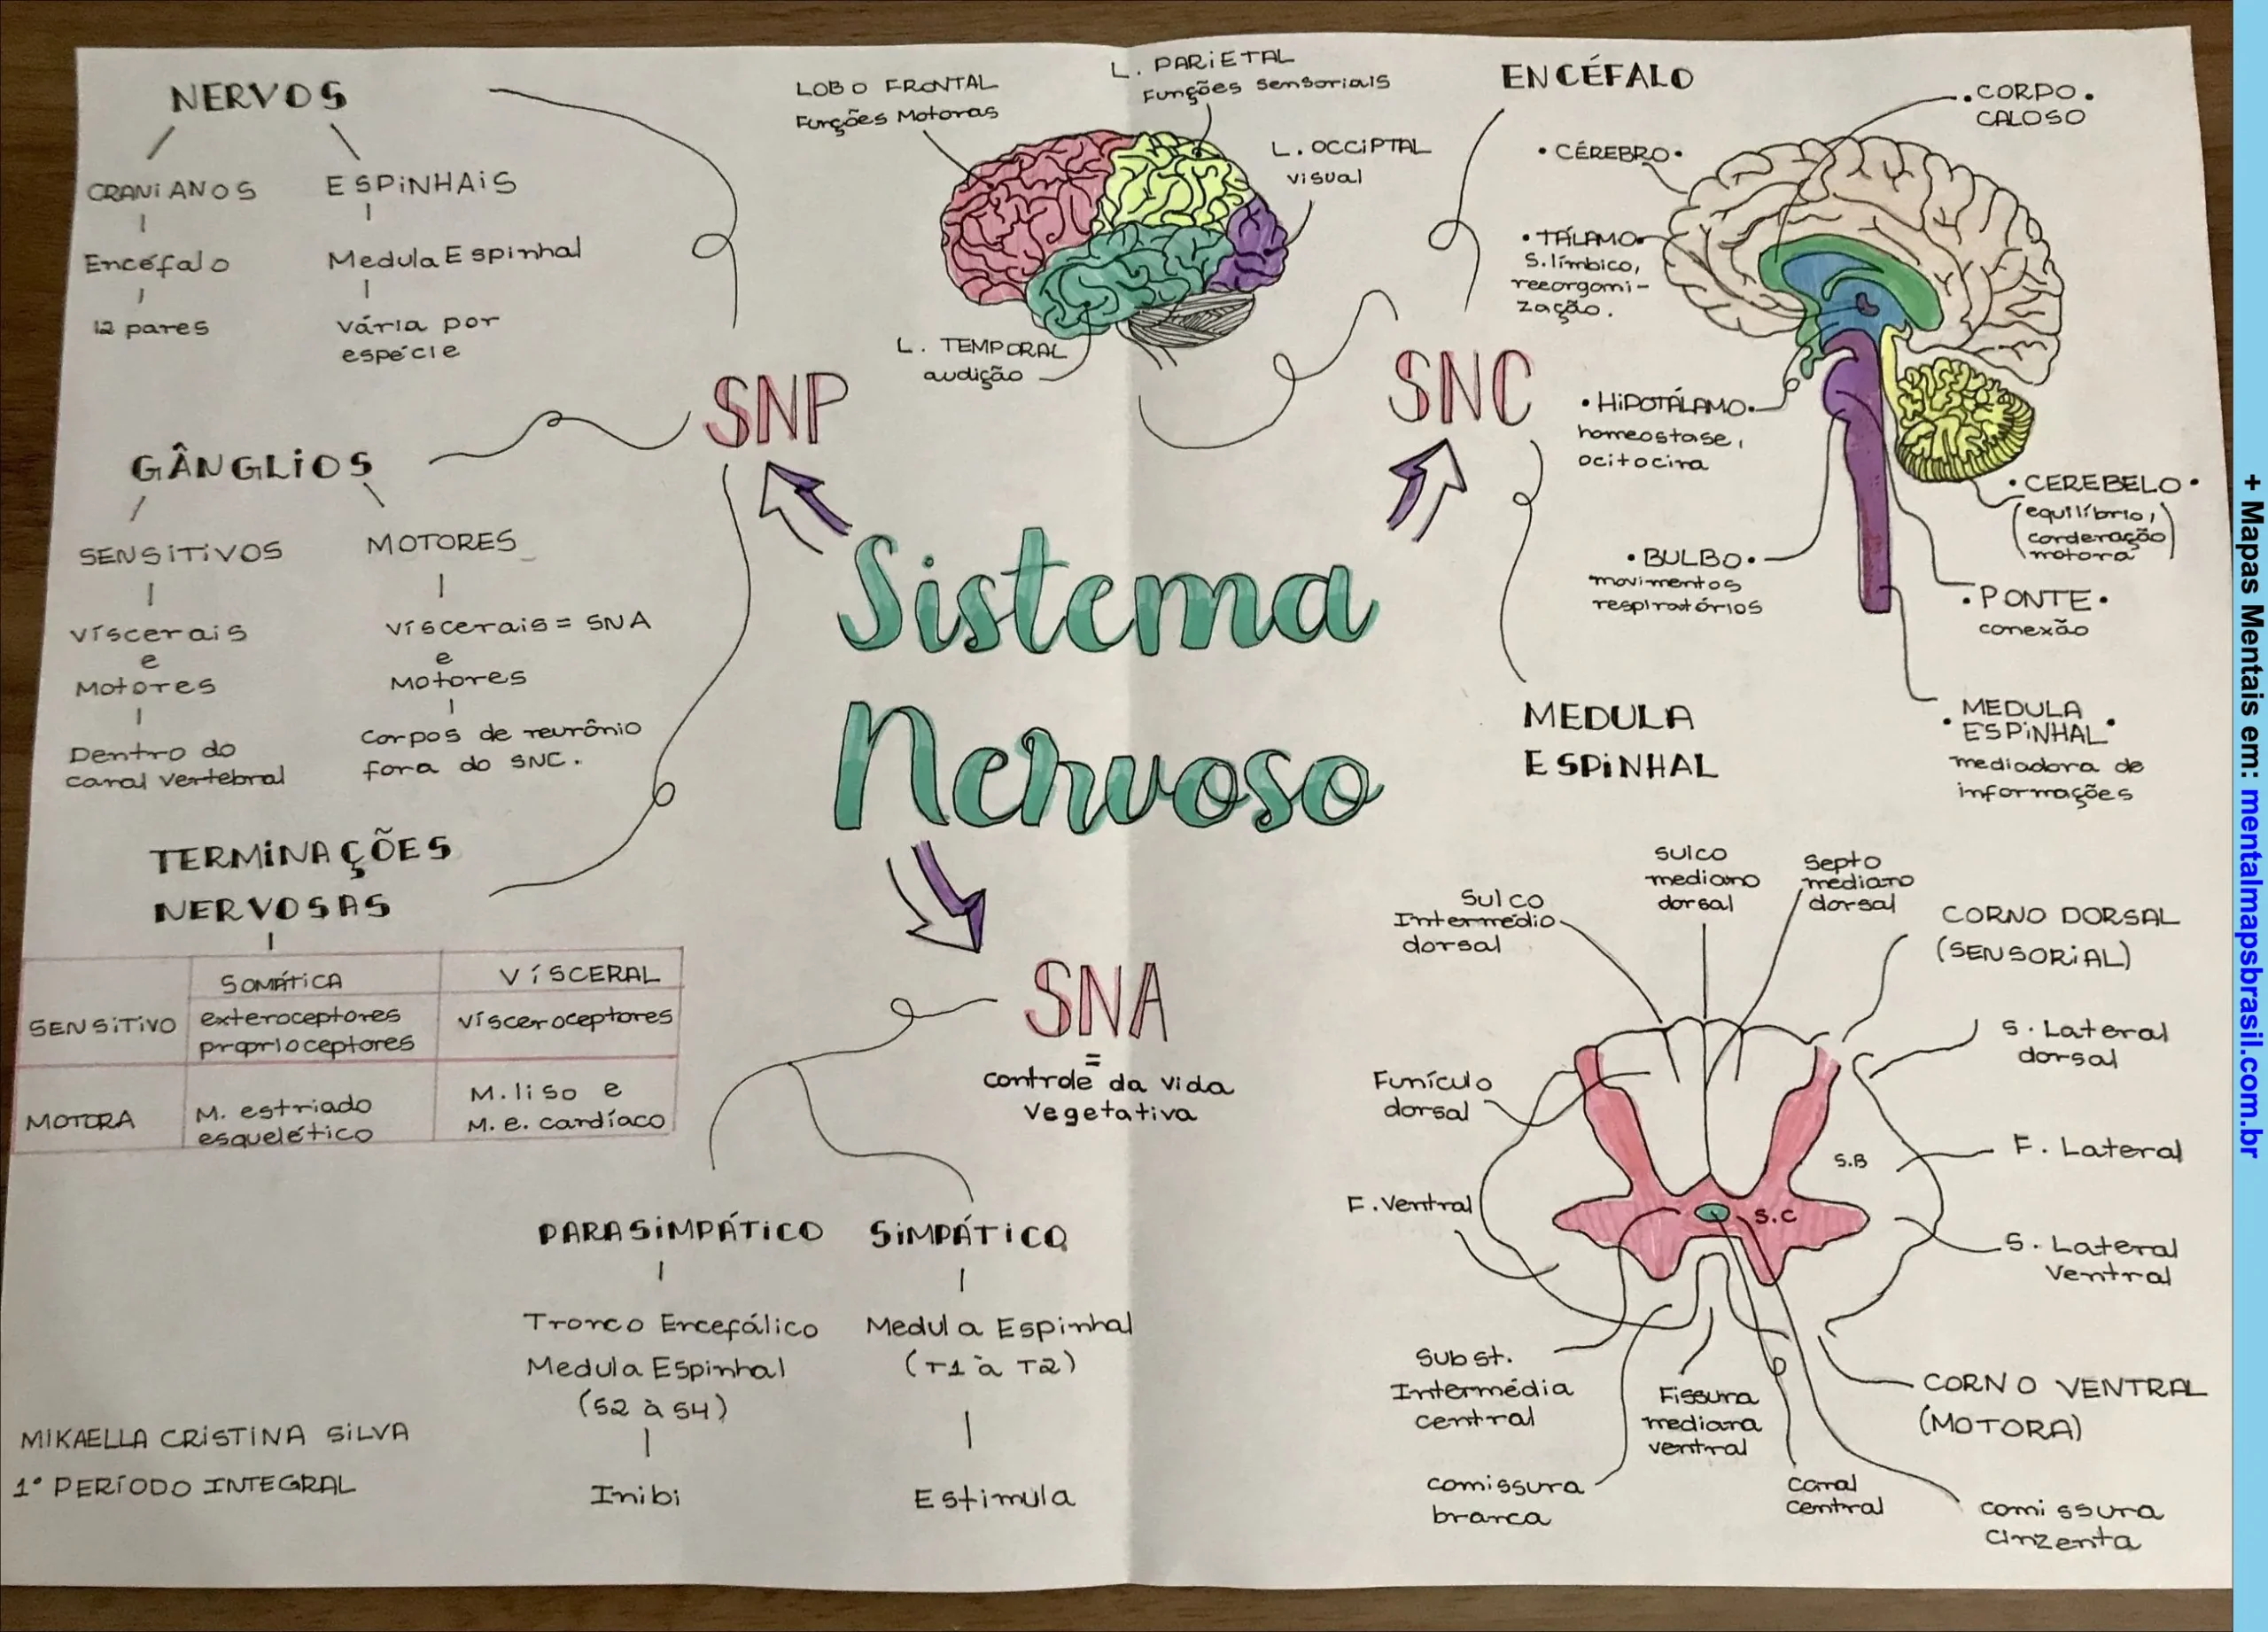 NERVOS
CRANIANOS
Encéfalo
12 pares
ESPINHAIS
Medula Espinhal
Vária por
espécie
GÂNGLIOS
SENSITIVOS
Víscerais
e
Motores
Dentro do
canal vertebral
MOTORES
Víscerais = SNA
e
Motores
Corpos de neurônio
fora do SNC.
TERMINAÇÕES
NERVOSAS
SOMÁTICA
VÍSCERAL
SENSITIVO
exteroceptores
proprioceptores
Vísceroceptores
MOTORA
M. estriado
esquelético
M. liso e
M. e. cardíaco
MIKAELLA CRISTINA SILVA
1º PERÍODO INTEGRAL
SNP
LOBO FRONTAL
Funções Motoras
L. PARIETAL
Funções sensoriais
L. OCCIPTAL
visual
L. TEMPORAL
audição
Sistema
Nervoso
SNA
=
controle da vida
Vegetativa
PARASIMPÁTICO
Tronco Encefálico
Medula Espinhal
(S2 à S4)
Inibi
SIMPÁTICO
Medula Espinhal
(T1 à T2)
Estimula
SNC
ENCÉFALO
•CORPO•
CALOSO
•CÉREBRO•
•TÁLAMO•
S. límbico,
reeorgani-
zação.
•HIPOTÁLAMO•
homeostase,
ocitocina
•BULBO•
movimentos
respiratórios
•CEREBELO•
(equilíbrio,
cordenação
motora)
•PONTE•
conexão
•MEDULA
ESPINHAL•
mediadora de
informações
MEDULA
ESPINHAL
Sulco
Intermédio
dorsal
Sulco
mediano
dorsal
Septo
mediano
dorsal
CORNO DORSAL
(SENSORIAL)
S. Lateral
dorsal
Funículo
dorsal
F. Lateral
S.B
S.C
F. Ventral
S. Lateral
Ventral
Subst.
Intermédia
central
Fissura
mediana
ventral
CORNO VENTRAL
(MOTORA)
comissura
branca
canal
central
comissura
cinzenta
+ Mapas Mentais em: mentalmapsbrasil.com.br